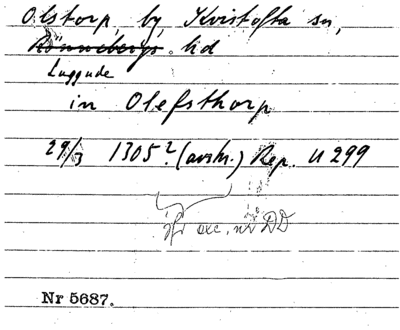 Olstorp by, Kvistofta sn,
Rönnebergs hd
Luggude
in Olefsthorp
29/3 1305? (avskr.) Rep. n 299
jfr exc. nr DD
Nr 5687.